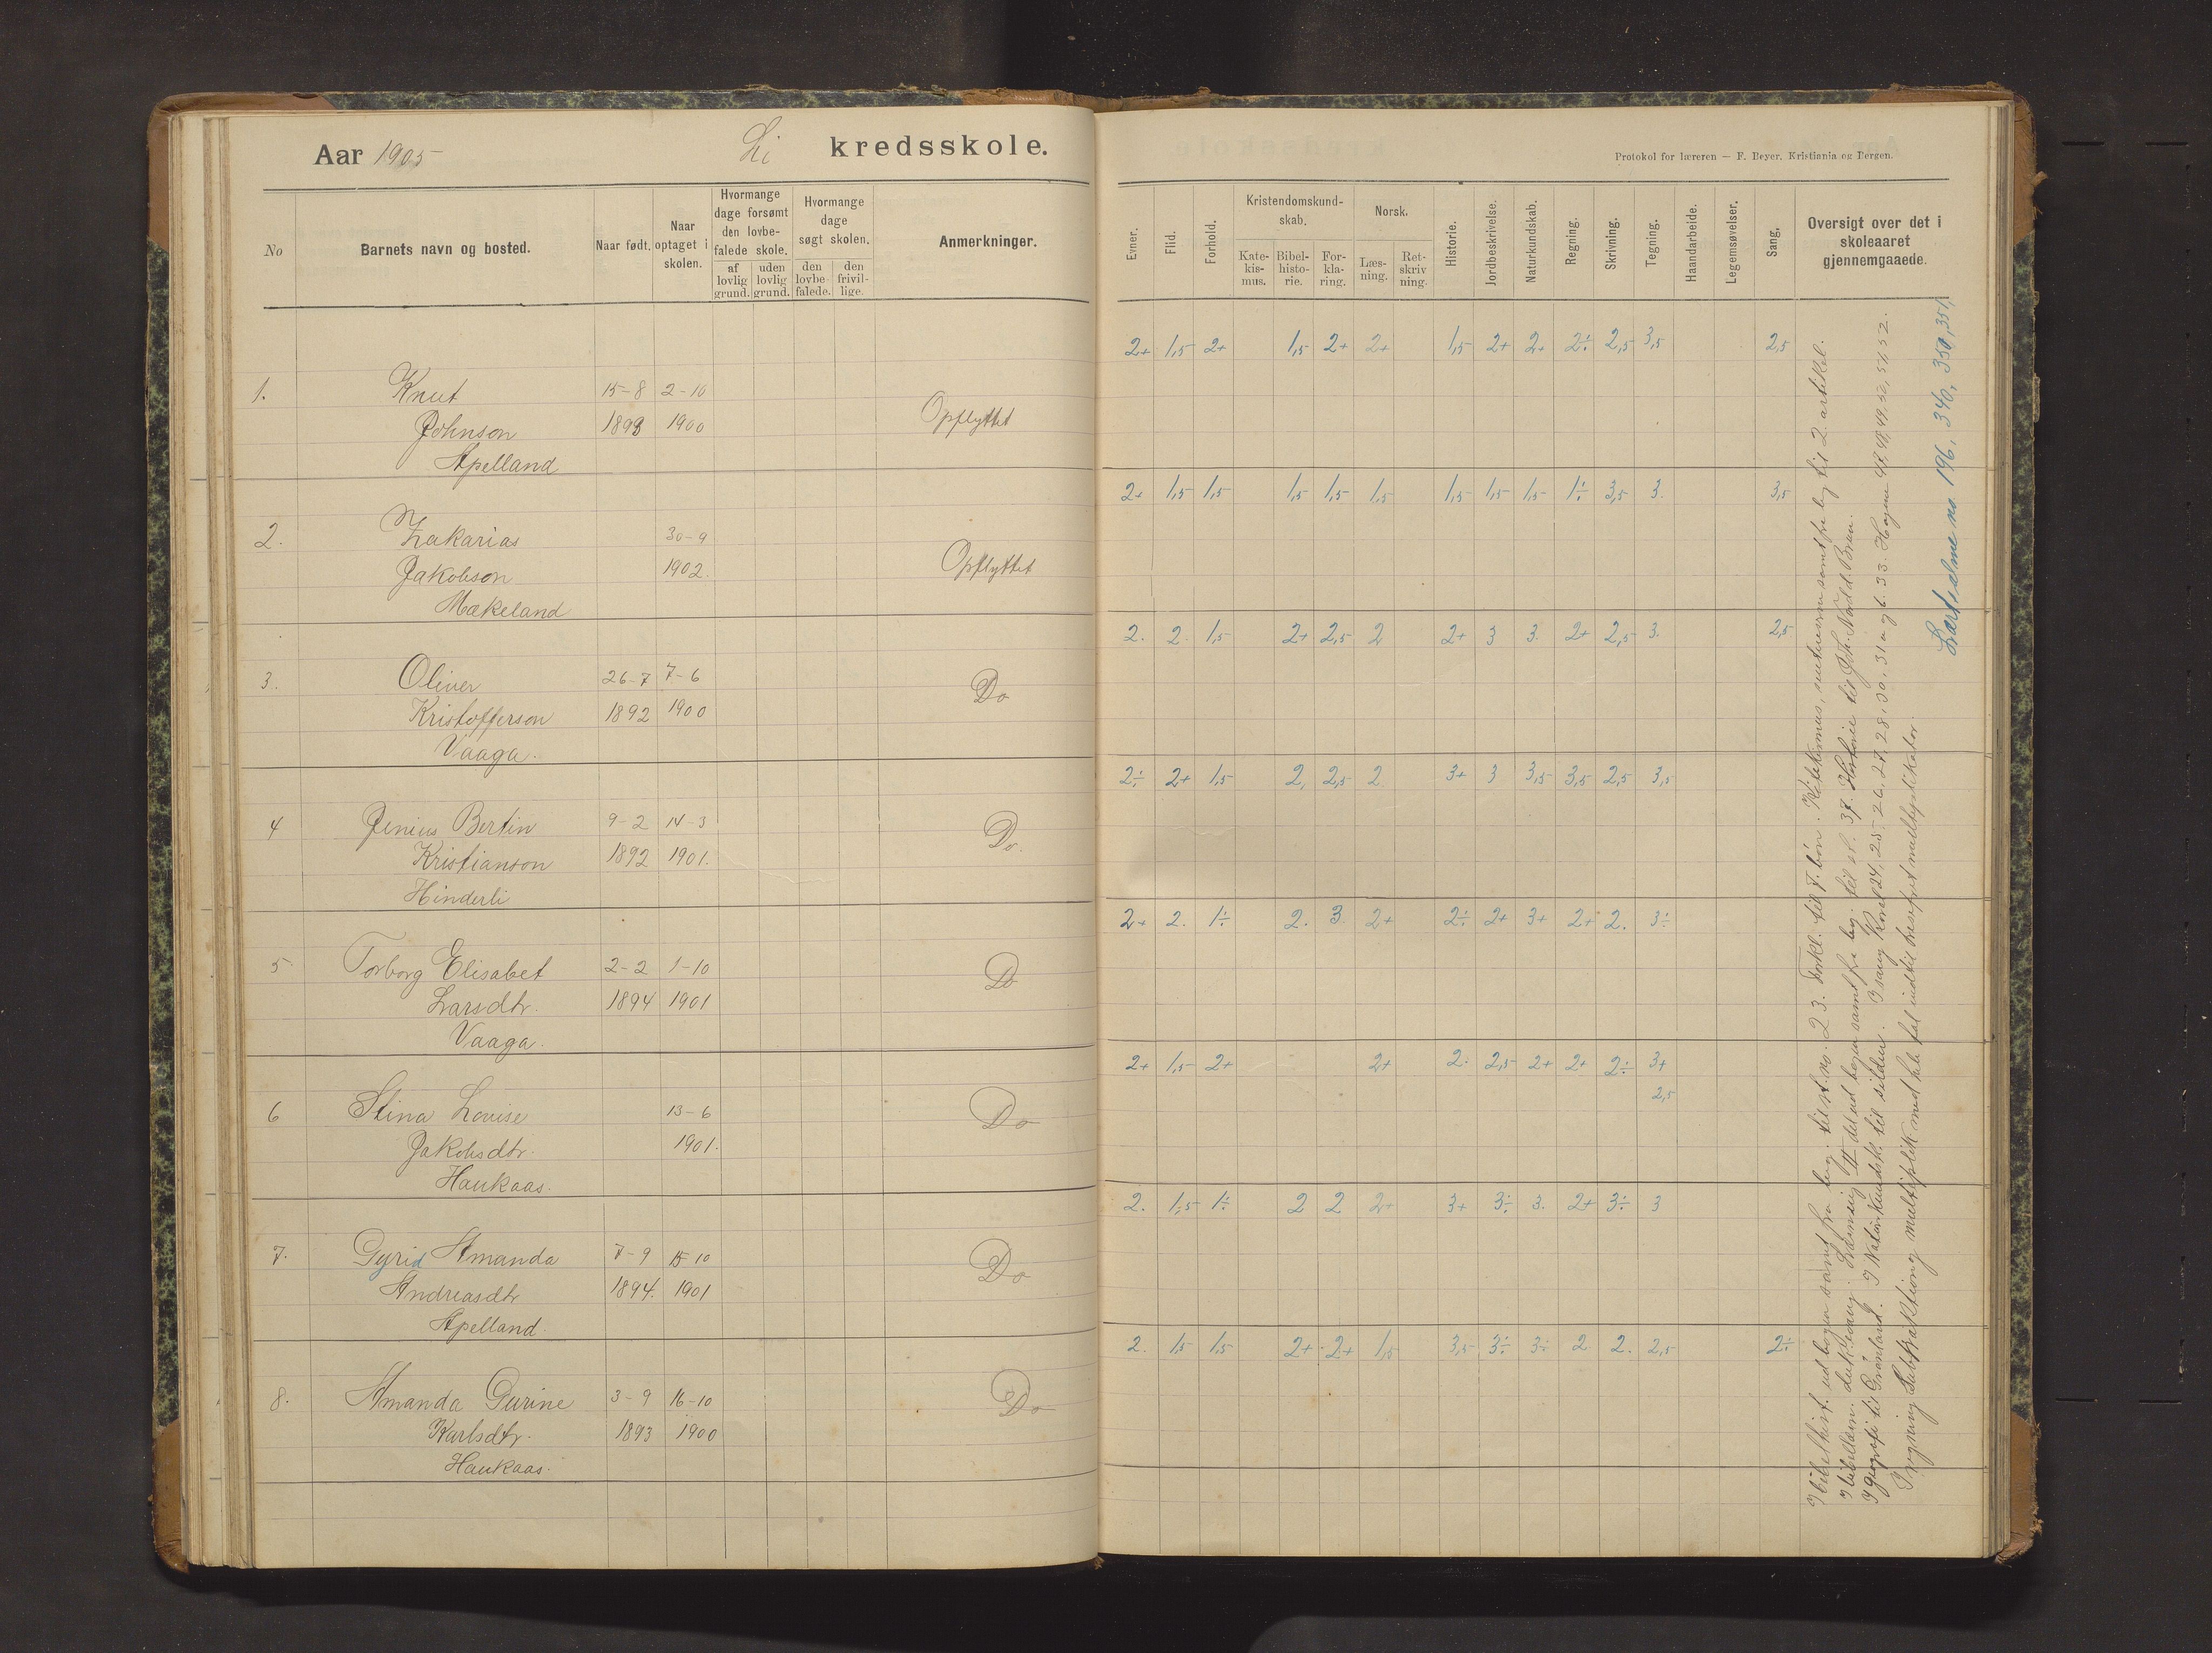 Aar 1905 Li kredsskole.
Protokol for læreren — F. Beyer. Kristiania og Bergen.
No
Barnets navn og bosted.
Naar født.
Naar optaget i skolen.
Hvormange dage forsømt den lovbefalede skole.
af lovlig grund.
uden lovlig grund.
Hvormange dage søgt skolen.
den lovbefalede.
den frivillige.
Anmerkninger.
Evner.
Flid.
Forhold.
Kristendomskundskab.
Katekismus.
Bibelhistorie.
Forklaring.
Norsk.
Læsning.
Retskrivning.
Historie.
Jordbeskrivelse.
Naturkundskab.
Regning.
Skrivning.
Tegning.
Haandarbeide.
Legemsøvelser.
Sang.
Oversigt over det i skoleaaret gjennemgaaede.
2+ 1,5 2+ 1,5 2+ 2+ 1,5 2+ 2+ 2÷ 2,5 3,5 2,5
1. Knut 15-8 2-10
Johnson 1893 1900 Opflyttet
Apelland
2+ 1,5 1,5 1,5 1,5 1,5 1,5 1,5 1,5 1÷ 3,5 3. 3,5
2. Zakarias 30-9
Jakobson 1902. Opflyttet
Mækeland
2. 2. 1,5 2+ 2,5 2 2+ 3 3. 2+ 2,5 3. 2,5
3. Oliver 26-7 7-6
Kristofferson 1892 1900 Do
Vaaga.
2÷ 2+ 1,5 2, 2,5 2 3+ 3 3,5 3,5 2,5 3,5
4 Jenius Bertin 9-2 14-3
Kristianson 1892 1901. Do.
Hinderli
2+ 2. 1÷ 2. 3. 2+ 2÷ 2+ 3+ 2+ 2. 3÷
5 Torborg Elisabet 2-2 1-10
Larsdtr. 1894 1901 Do
Vaaga.
2+ 1,5 2+ 2+ 2. 2,5 2+ 2+ 2÷ 3+
2,5
6 Stina Lovise 13-6
Jakobsdtr. 1901. Do
Haukaas.
2. 1,5 1÷ 2 2 2+ 3+ 3÷ 3. 2+ 3÷ 3
7. Gyrid Amanda 7-9 15-10
Andreasdtr 1894. 1901 Do
Apelland.
2. 1,5 1,5 2+ 2+ 1,5 3,5 3÷ 3÷ 2 2. 2,5 2÷
8. Amanda Gurine 3-9 16-10
Karlsdtr. 1893 1900 Do
Haukaas.
I bibelhist. ud bogen samt fra beg. til st. no. 23. Forkl. til 7. bøn. Katekismus, samt fra beg. til 2. artikel.
ud bogen samt fra beg. til st. 37. Historie til Joh. Nordal Brun.
I geografi til Grønland. I Naturkundsk. til silden. I sang Kovel 24, 25- 26, 27, 28, 30, 31 og b. 33. Hognæ 47, 48, 49, 50, 51, 52.
I regning Subtraktion og multiplik med hele tal indtil tresifret multiplikator.
Lært salme no 196, 340, 350, 351,